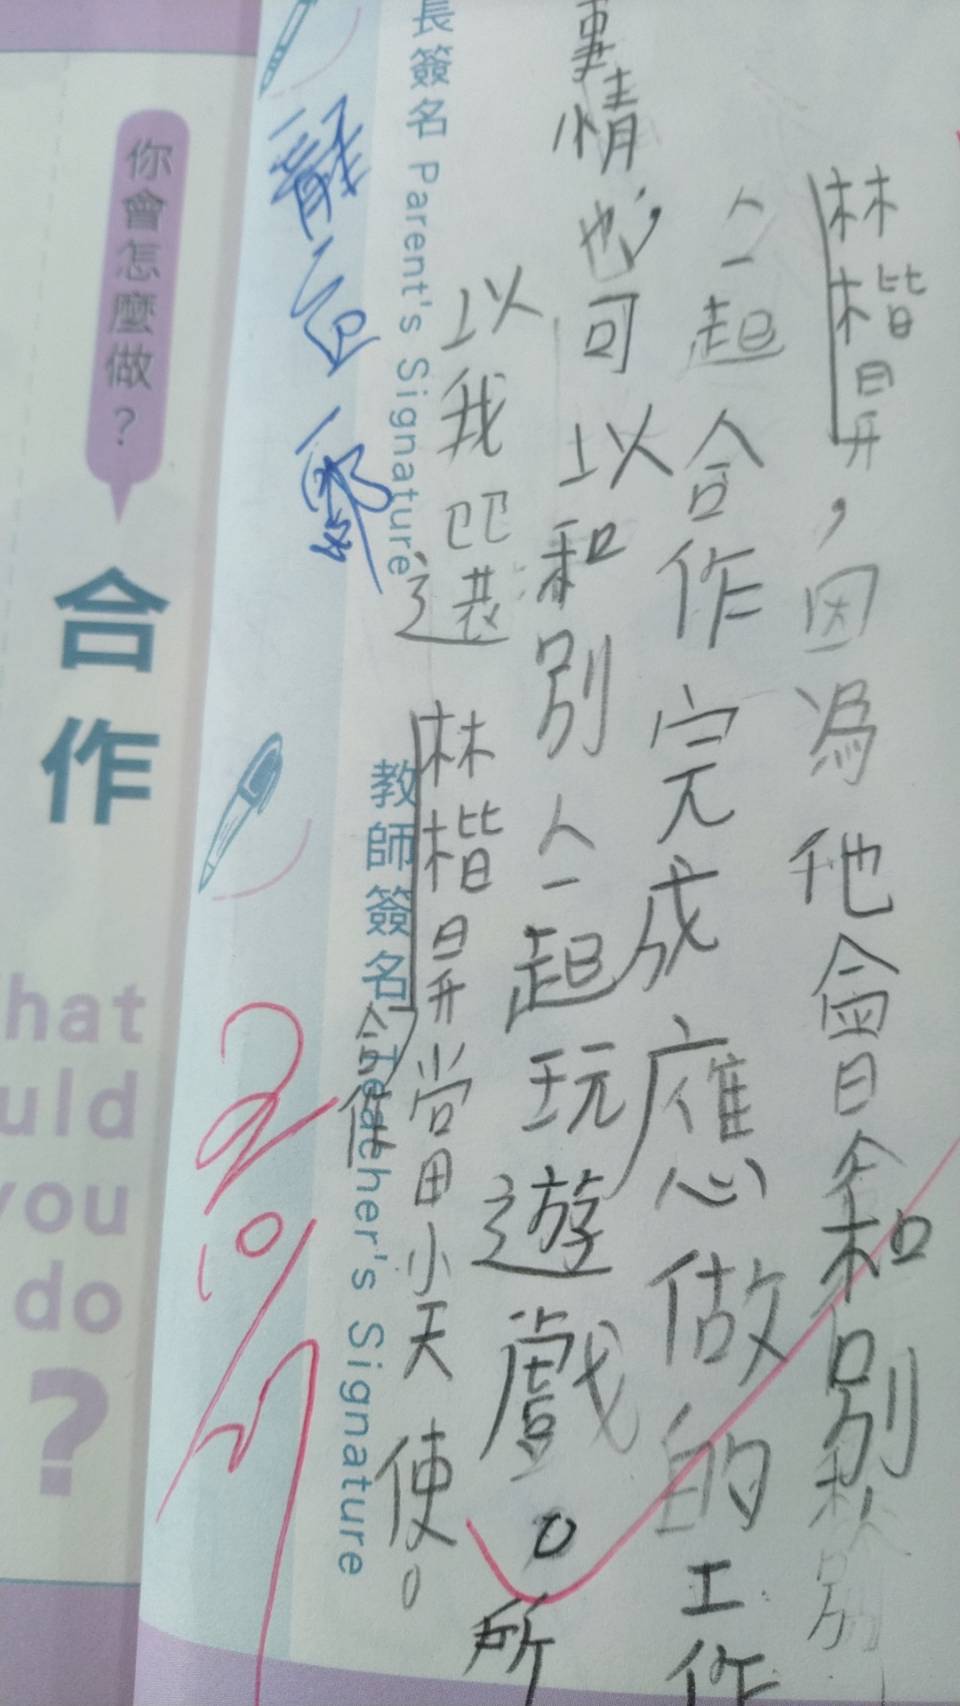 林楷昇，因為他會和別
人一起合作完成應做的工作
事情，也可以和別人一起玩遊戲。所
以我把選林楷昇當小天使。
合作
長簽名 Parent's Signature
教師簽名 Teacher's Signature
你會怎麼做？
合作
hat
uld
you
do
?